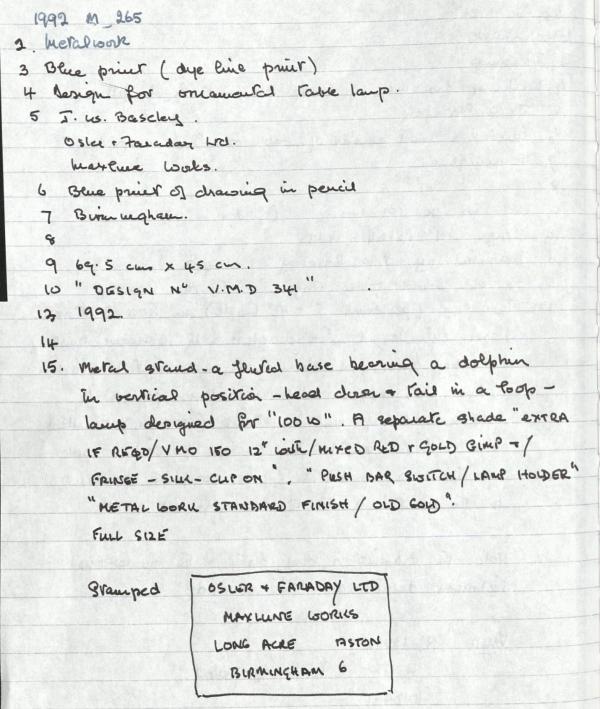 1992 M_265
2. Metalwork
3 Blue print (dye line print)
4 Design for ornamental table lamp.
5 J. W. Baseley.
Osler & Faraday Ltd.
Maxlume Works.
6 Blue print of drawing in pencil
7 Birmingham.
8
9 69.5 cms x 45 cm.
10 "DESIGN No V.M.D 341"
13 1992
14
15. Metal stand - a fluted base bearing a dolphin
in vertical position - head down & tail in a loop -
lamp designed for "100 W". A separate shade "EXTRA
IF REQD/VMD 150 12" / MIXED RED & GOLD GIMP & /
FRINGE - SILK - CLIP ON", "PUSH BAR SWITCH / LAMP HOLDER"
"METAL WORK STANDARD FINISH / OLD GOLD".
FULL SIZE
Stamped
OSLER & FARADAY LTD
MAXLUME WORKS
LONG ACRE ASTON
BIRMINGHAM 6